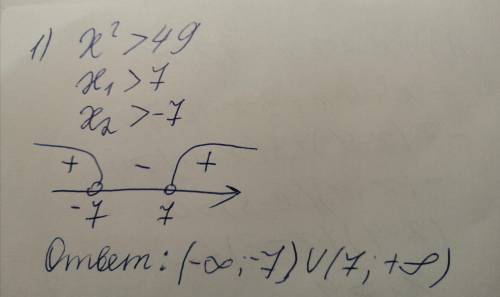 1) x² > 49
x₁ > 7
x₂ > -7
+ - +
-7 7
Ответ: (-∞; -7) ∪ (7; +∞)